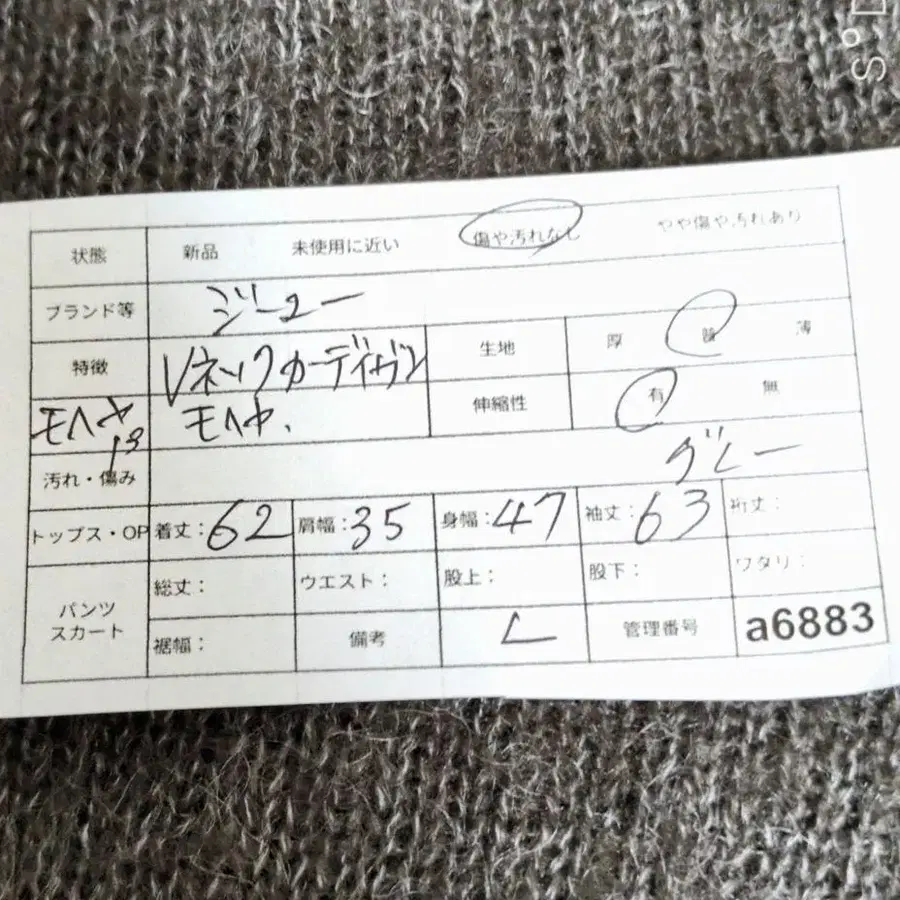 状態 新品 未使用に近い 傷や汚れなし やや傷や汚れあり
ブランド等 ジーユー
特徴 Vネックカーディガン 生地 厚 普 薄
モヘヤ モヘヤ. 伸縮性 有 無
13
汚れ・傷み グレー
トップス・OP 着丈:62 肩幅:35 身幅:47 袖丈:63 裄丈:
パンツ スカート 総丈: ウエスト: 股上: 股下: ワタリ:
裾幅: 備考 L 管理番号 a6883